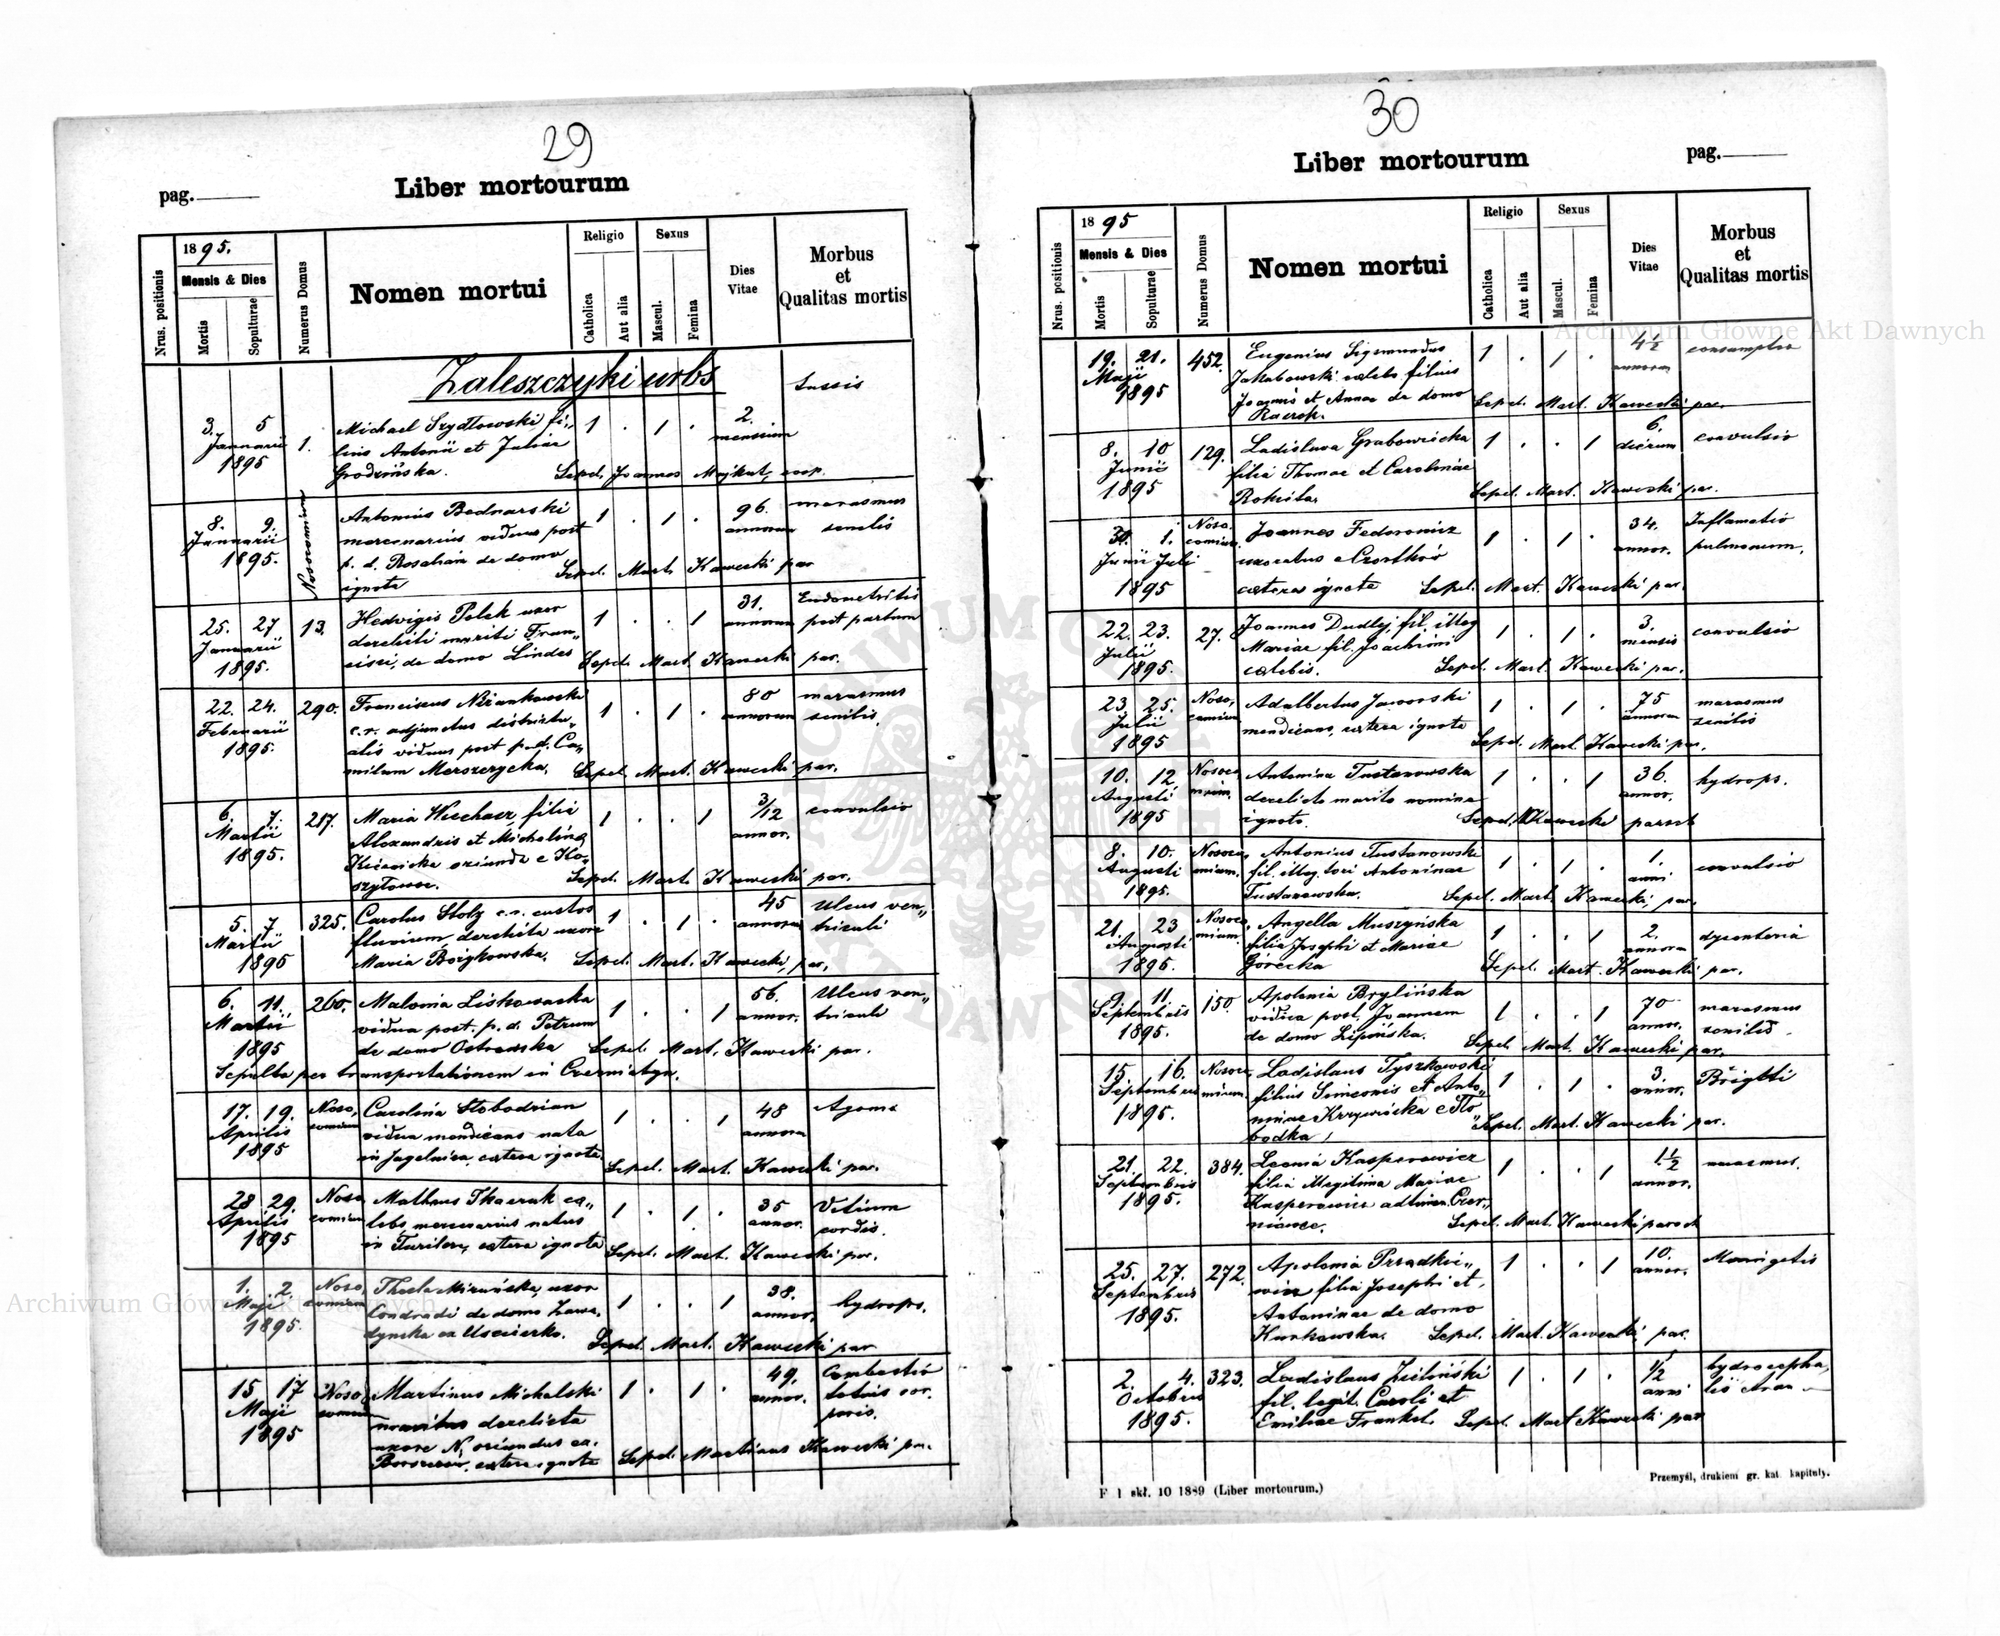 29
Liber mortourum
pag.
Nrus. positionis
1895.
Mensis & Dies
Mortis
Sopulturae
Numerus Domus
Nomen mortui
Religio
Catholica
Aut alia
Sexus
Mascul.
Femina
Dies Vitae
Morbus et Qualitas mortis
Zaleszczyki urbs
3. 5 Januarii 1895 1. Michael Szydłowski fi-
lius Antonii et Juliae
Grodzińska. 1 . 1 . 2. mensium tussis
Sepel. Joannes Majkut, coop.
8. 9. Januarii 1895. Nosocomium Antonius Bednarski
mercenarius viduus post
p. d. Rosaliam de domo
ignota 1 . 1 . 96. annorum marasmus senilis
Sepel. Mart. Kawecki par
25. 27 Januarii 1895. 13. Hedvigis Polek uxor
derelicti mariti Fran-
cisci, de domo Lindes 1 . . 1 31. annorum Endometritis post partum
Sepel. Mart. Kawecki par.
22. 24. Februarii 1895. 290. Franciscus Niżankowski
c.r. adjunctus districtu-
alis viduus post p. d. Ca-
milam Merszerycka. 1 . 1 . 80 annorum marasmus senilis.
Sepel. Mart. Kawecki par.
6. 7. Martii 1895. 217. Maria Wiechacz, filia
Alexandris et Michalina
oriunda e 1 . . 1 3/12 annor. convulsio
Sepel. Mart. Kawecki par.
5. 7 Martii 1895 325. Carolus Stolz c.r. custos
fluvium, derelicta uxore
Maria 1 . 1 . 45 annorum Ulcus ven-
triculi
Sepel. Mart. Kawecki, par.
6. 11. Martii 1895 260. Malonia Liskowacka
vidua post. p. d. Petrum
de domo Ostrowska 1 . . 1 56. annor. Ulcus ven-
triculi
Sepel. Mart. Kawecki par.
Sepulta per transportationem in
17. 19. Aprilis 1895 Nosocomium Carolina Slobodzian
vidua mendicans nata
in Jagielnica, cetera ignota 1 . . 1 48 annorum Agoma
Sepel. Mart. Kawecki par.
28 29. Aprilis 1895 Nosocomium Matheus Tkaczuk cae-
lebs, mercenarius natus
in cetera ignota 1 . 1 . 35 annor. Vitium cordis.
Sepel. Mart. Kawecki par.
1. 2. Maji 1895. Nosocomium Thecla Mizuńska, uxor
Condradi de domo Zawa-
dyncka ex Uscieczko. 1 . . 1 38. annor. hydrops.
Sepel. Mart. Kawecki par
15 17 Maji 1895 Nosocomium Martinus Michalski
maritus derelicta
uxore N. oriundus ex
cetera ignota 1 . 1 . 49. annor. Combustio totius cor-
poris.
Sepel. Martinus Kawecki par.
30
Liber mortourum
pag.
Nrus. positionis
1895
Mensis & Dies
Mortis
Sopulturae
Numerus Domus
Nomen mortui
Religio
Catholica
Aut alia
Sexus
Mascul.
Femina
Dies Vitae
Morbus et Qualitas mortis
19. 21. Maji 1895 452. Eugenius Sigismundus
Jakubowski caelebs filius
Joannis et Annae de domo 1 . 1 . 4½ annorum consumptio
Sepel. Mart. Kawecki par.
8. 10 Junii 1895 129. Ladislava Grabowiecka
filia Thomae et Carolinae
Rokita. 1 . . 1 6. dierum convulsio
Sepel. Mart. Kawecki par.
30. 1. Junii Juli 1895 Nosocomium Joannes Fedorowicz
uxoratus e Czortków
cetera ignota 1 . 1 . 34. annor. Inflamatio pulmonum.
Sepel. Mart. Kawecki par.
22. 23. Julii 1895. 27. Joannes Dudlej, fil. illeg
Mariae fil. Joachimi
caelebis. 1 . 1 . 3. mensis convulsio
Sepel. Mart. Kawecki par.
23. 25. Julii 1895 Nosocomium Adalbertus Jaworski
mendicans, cetera ignota 1 . 1 . 75 annorum marasmus senilis
Sepel. Mart. Kawecki par.
10. 12 Augusti 1895 Nosocomium Antonina Tustanowska
derelicta marito nomine
ignoto. 1 . . 1 36. annor. hydrops.
Sepel. M Kawecki paroch
8. 10. Augusti 1895. Nosocomium. Antonius Tustanowski
fil. illeg. tori Antoninae
Tustanowska. 1 . 1 . 1. anni convulsio
Sepel. Mart. Kawecki, par.
21. 23 Augusti 1895. Nosocomium. Angella Muszyńska
filia Josephi et Mariae
Górecka 1 . . 1 2. annorum dysenteria
Sepel. Mart. Kawecki par.
9. 11. Septembris 1895. 150. Apolonia Brylińska
vidua post. Joannem
de domo Lipińska. 1 . . 1 70 annor. marasmus senilis.
Sepel. Mart. Kawecki par.
15 16. Septembris 1895. Nosocomium. Ladislaus Tyszkowski
filius Simeonis et Anto-
ninae Krzywicka e Sło-
bodka, 1 . 1 . 3. annor. Brigtti
Sepel. Mart. Kawecki par.
21. 22. Septembris 1895. 384. Leonia Kasperowicz
filia illegitima Mariae
Kasperowicz 1 . . 1 1½ annor. marasmus.
Sepel. Mart. Kawecki paroch
25. 27. Septembris 1895. 272. Apolonia Przadkie-
wicz filia Josephi et
Antoninae de domo
Kunkowska. 1 . . 1 10. annor. Maningetis
Sepel. Mart. Kawecki par.
2. 4. Octobris 1895. 323. Ladislaus Zieliński
fil. legit. Caroli et
Emiliae Frankel. 1 . 1 . ½ anni
Sepel. Mart Kawecki par
F 1 skł. 10 1889 (Liber mortourum.)
Przemyśl, drukiem gr. kat. kapituły.
Archiwum Główne Akt Dawnych
Archiwum Główne Akt Dawnych
ARCHIWUM GŁÓWNE AKT DAWNYCH